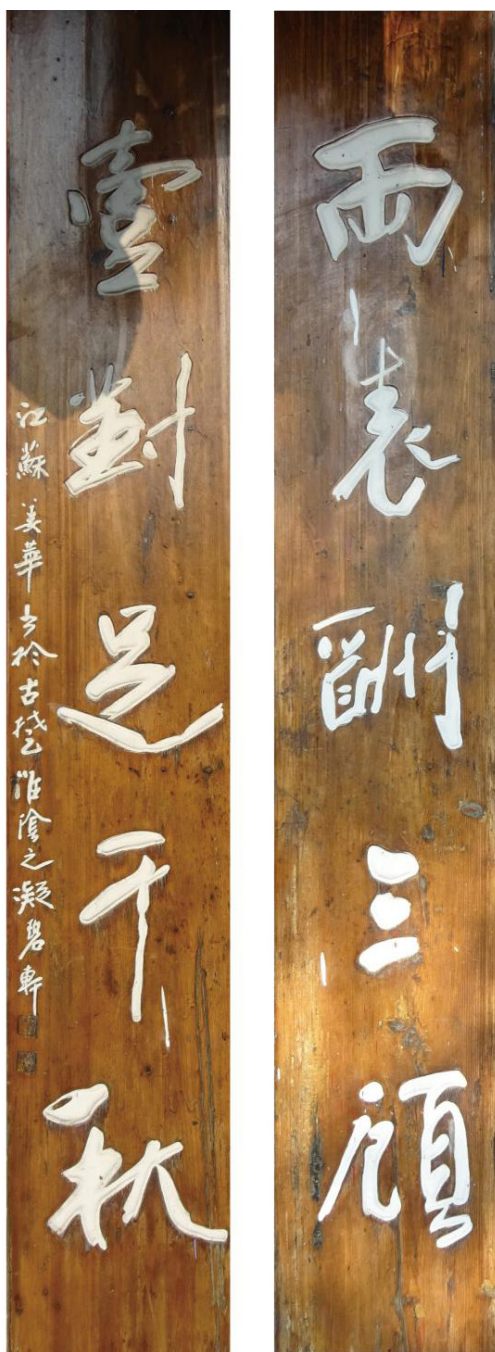 兩表酬三顧
壹對足千秋
江蘇姜華书於古楚淮陰之凝碧軒